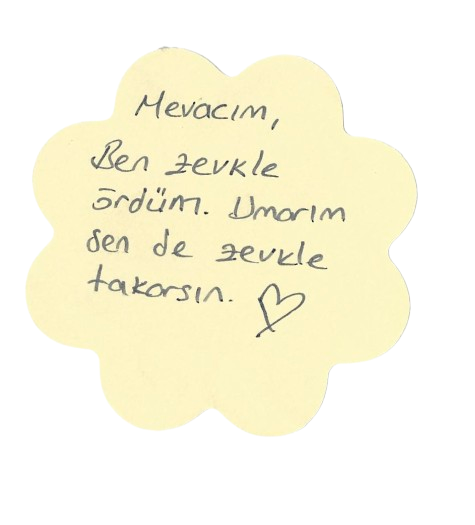 Mevacım,
Ben zevkle
ördüm. Umarım
sen de zevkle
takarsın.